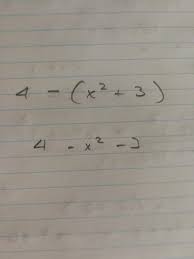 4 - (x² + 3)
4 - x² - 3